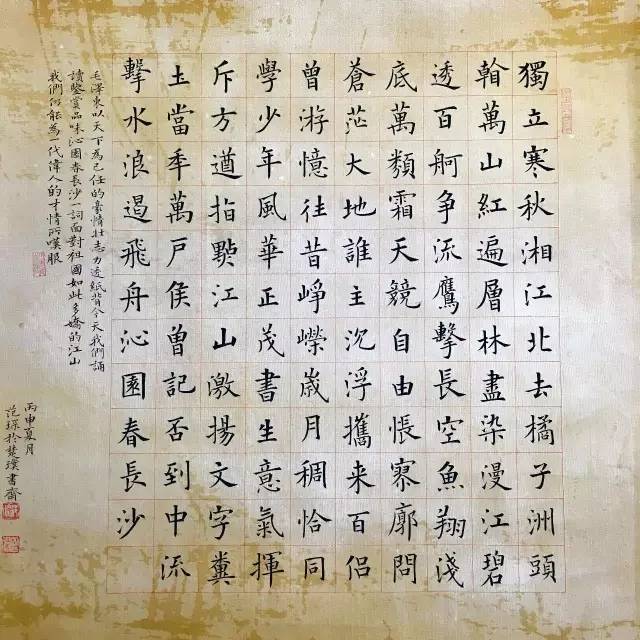 獨立寒秋湘江北去橘子洲頭
看萬山紅遍層林盡染漫江碧
透百舸争流鷹擊長空魚翔淺
底萬類霜天競自由悵寥廓問
蒼茫大地誰主沉浮攜来百侣
曾游憶往昔崢嶸歲月稠恰同
學少年風華正茂書生意氣揮
斥方遒指點江山激揚文字糞
土當年萬戶侯曾記否到中流
擊水浪遏飛舟沁園春長沙
毛澤東以天下為己任的豪情壯志力透紙背今天我們誦
讀鑒賞品味沁園春長沙一詞面對祖國如此多嬌的江山
我們何能為一代偉人的才情所嘆服
丙申夏月
范琛於楚璞書齋